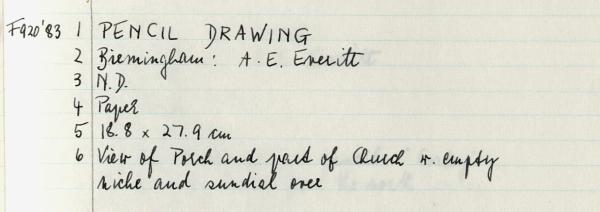 F920'83 1 PENCIL DRAWING
2 Birmingham: A. E. Everitt
3 N.D.
4 Paper
5 18.8 x 27.9 cm
6 View of Porch and part of Church w. empty
niche and sundial over